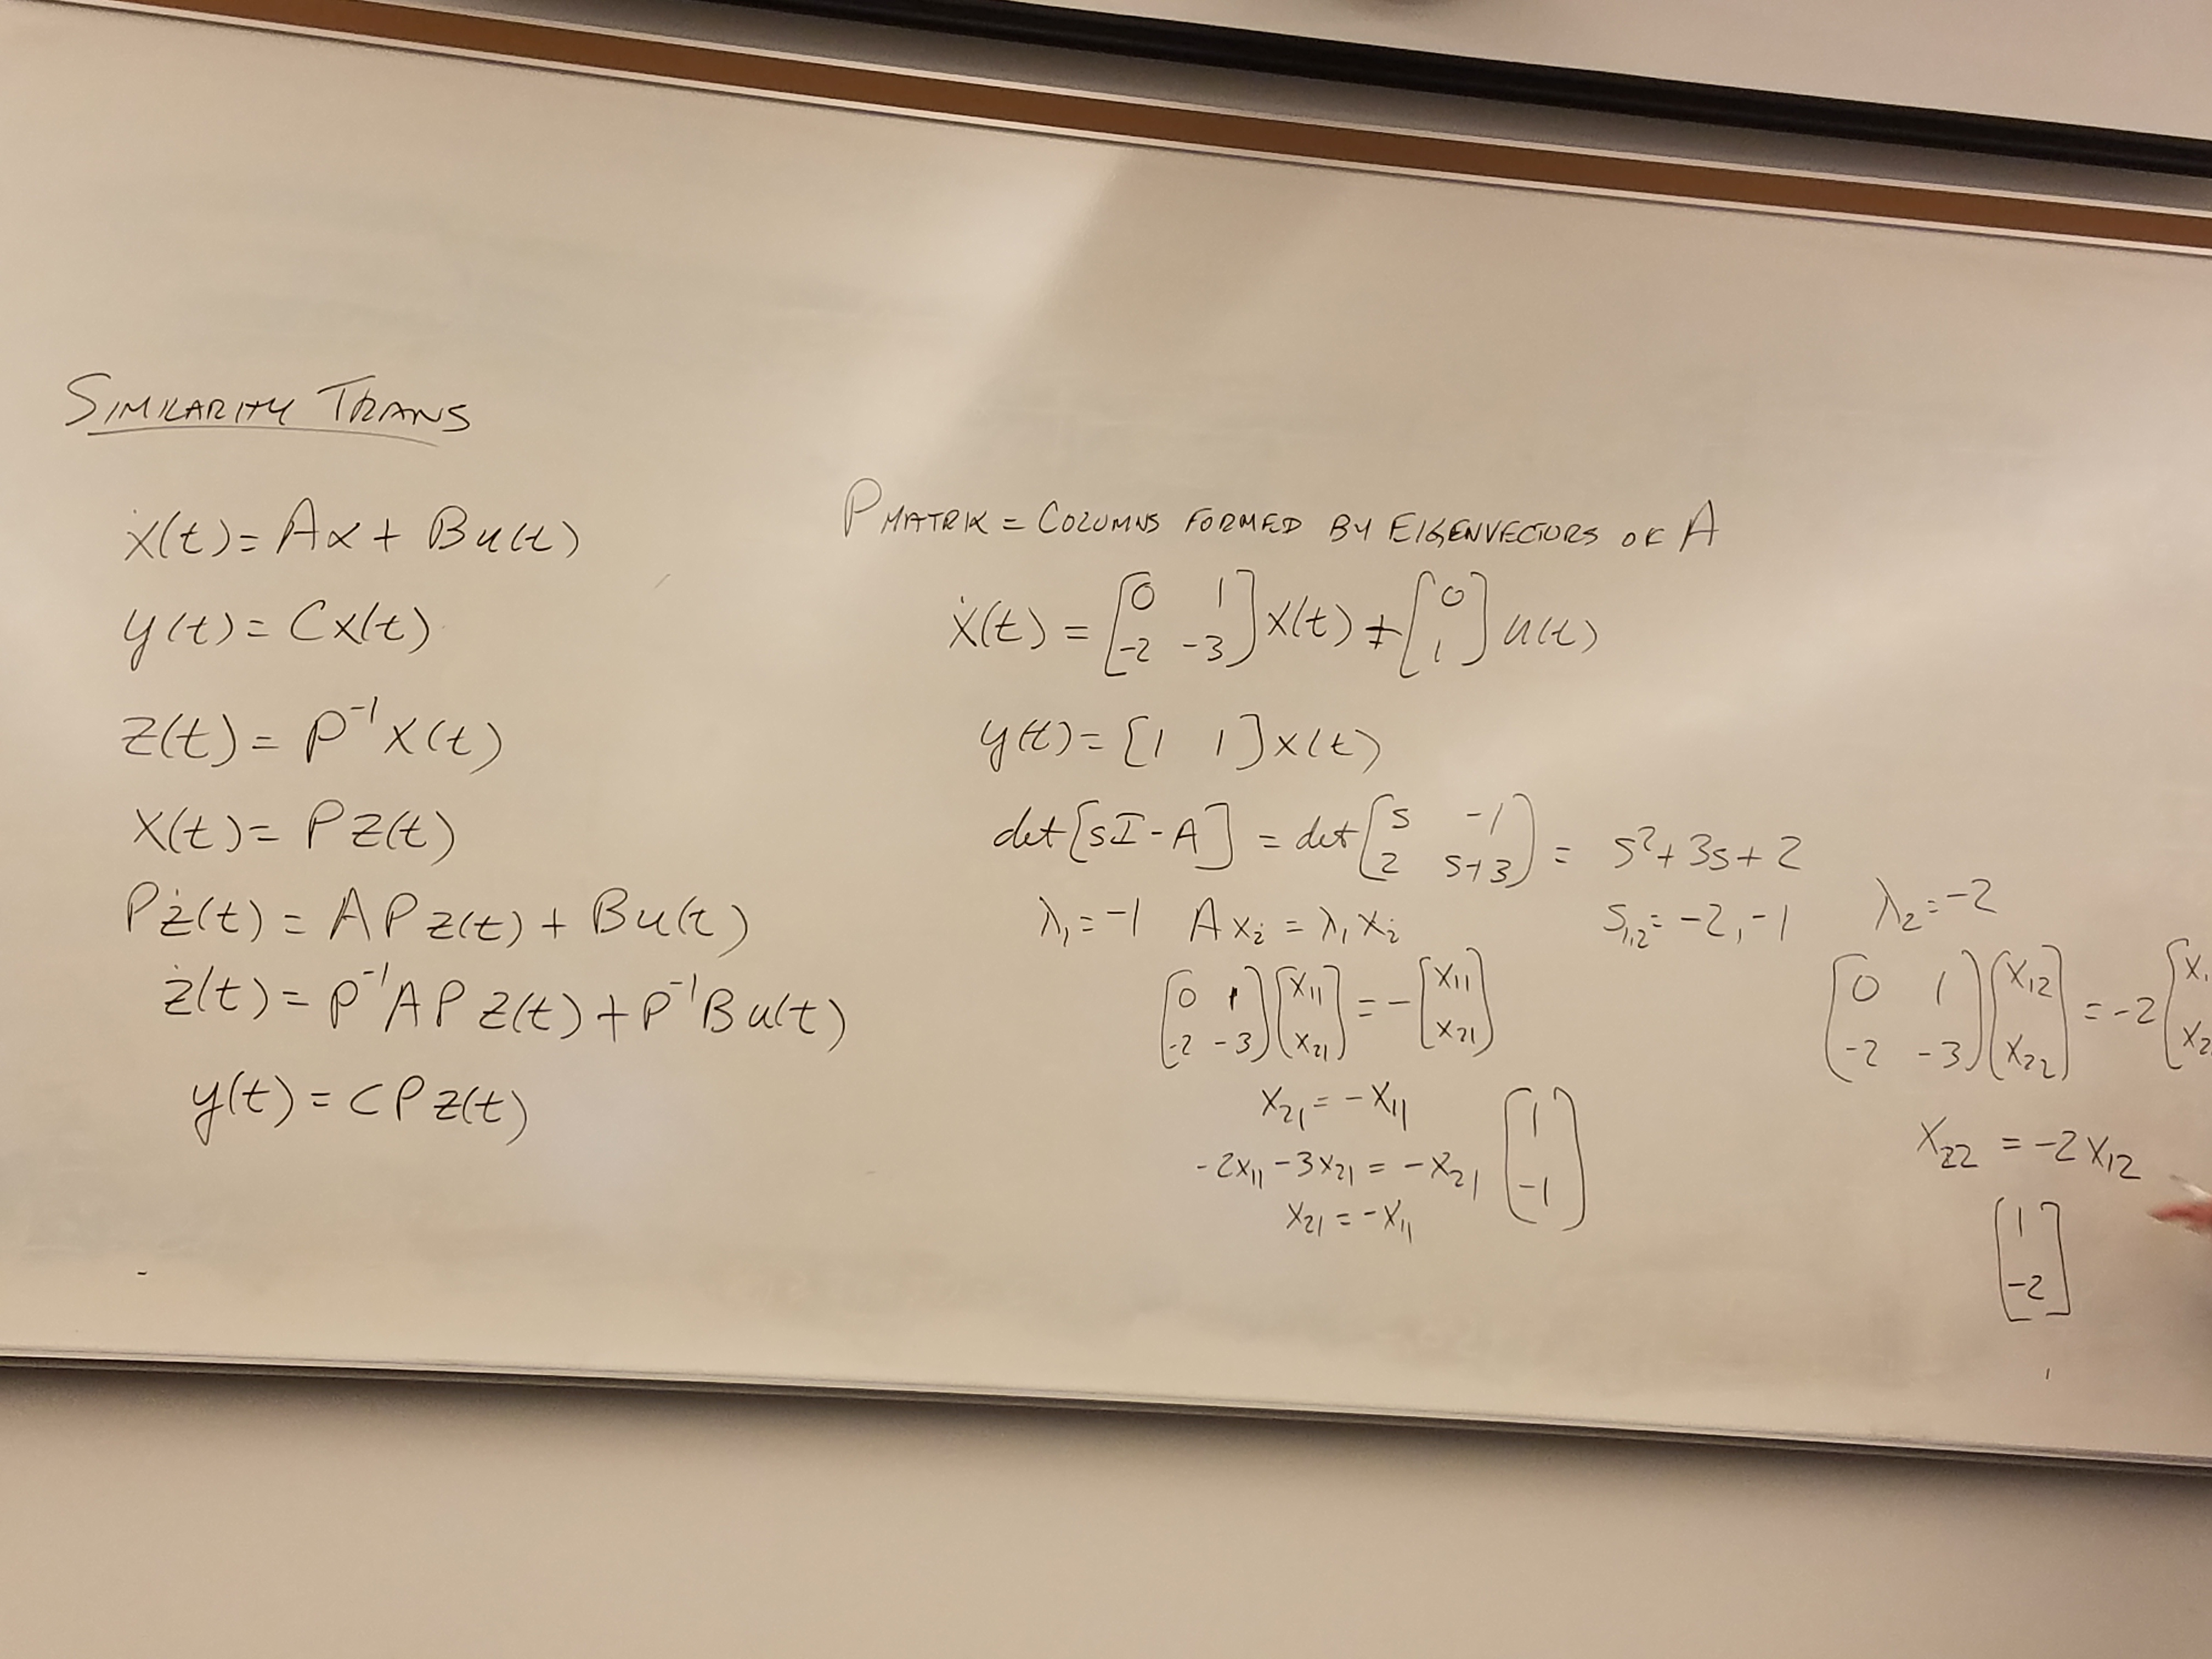 SIMILARITY TRANS
ẋ(t) = Ax + Bu(t)
y(t) = Cx(t)
z(t) = P⁻¹x(t)
x(t) = Pz(t)
Pż(t) = APz(t) + Bu(t)
ż(t) = P⁻¹APz(t) + P⁻¹Bu(t)
y(t) = CPz(t)
P MATRIX = COLUMNS FORMED BY EIGENVECTORS OF A
ẋ(t) = [0 1; -2 -3] x(t) + [0; 1] u(t)
y(t) = [1 1] x(t)
det[sI - A] = det[s -1; 2 s+3] = s² + 3s + 2
s₁,₂ = -2, -1
λ₁ = -1 A xᵢ = λ₁ xᵢ
[0 1; -2 -3] [x₁₁; x₂₁] = -[x₁₁; x₂₁]
x₂₁ = -x₁₁
-2x₁₁ - 3x₂₁ = -x₂₁
x₂₁ = -x₁₁
[1; -1]
λ₂ = -2
[0 1; -2 -3] [x₁₂; x₂₂] = -2 [x₁; x₂
x₂₂ = -2x₁₂
[1; -2]